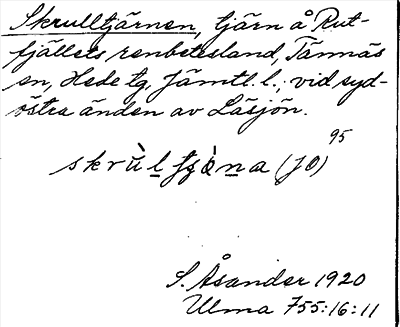 Skrulltjärnen, tjärn å Rut-
fjällets renbetesland, Tännäs
sn, Hede tg, Jämtl. l.; vid syd-
östra änden av Låsjön.
95
skrùl (JO)
S. Åsander 1920
Ulma 755:16:11